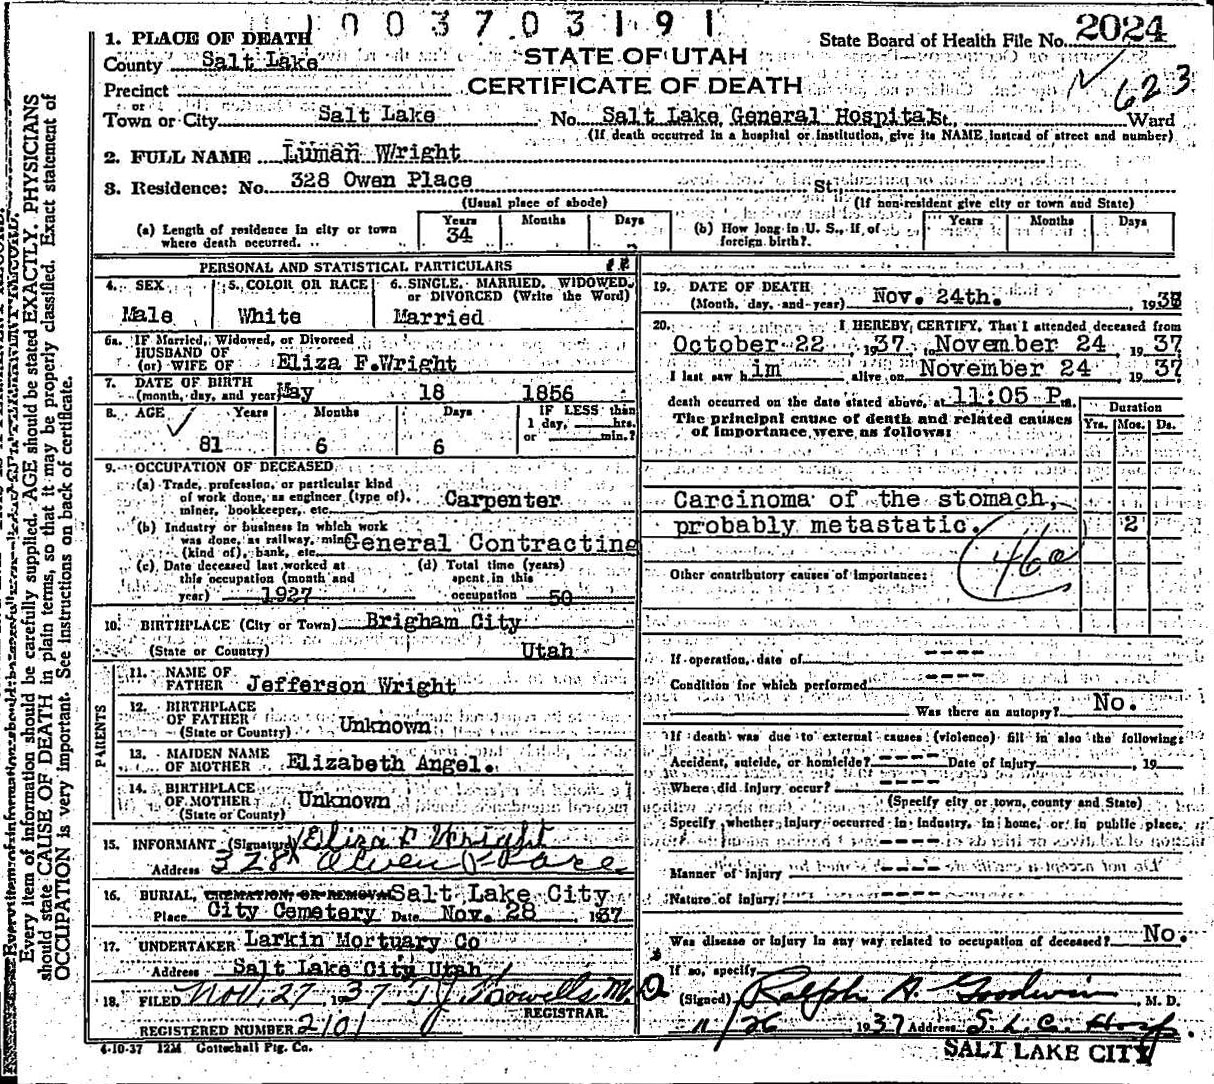 1003703191
2024
1. PLACE OF DEATH
State Board of Health File No.
County Salt Lake
STATE OF UTAH
Precinct
CERTIFICATE OF DEATH
623
or
Town or City Salt Lake No. Salt Lake General Hospital St. Ward
(If death occurred in a hospital or institution, give its NAME instead of street and number)
2. FULL NAME Luman Wright
3. Residence: No. 328 Owen Place St.
(Usual place of abode) (If non-resident give city or town and State)
(a) Length of residence in city or town where death occurred. Years 34 Months Days
(b) How long in U. S., if of foreign birth? Years Months Days
PERSONAL AND STATISTICAL PARTICULARS
4. SEX Male
5. COLOR OR RACE White
6. SINGLE, MARRIED, WIDOWED, or DIVORCED (Write the Word) Married
6a. If Married, Widowed, or Divorced
HUSBAND OF
(or) WIFE OF Eliza F.Wright
7. DATE OF BIRTH
(month, day, and year) May 18 1856
8. AGE Years 81 Months 6 Days 6 IF LESS than 1 day, hrs. or min.?
9. OCCUPATION OF DECEASED
(a) Trade, profession, or particular kind
of work done, as engineer (type of),
miner, bookkeeper, etc. Carpenter
(b) Industry or business in which work
was done, as railway, mine
(kind of), bank, etc. General Contracting
(c) Date deceased last worked at
this occupation (month and
year) 1927
(d) Total time (years)
spent in this
occupation 50
10. BIRTHPLACE (City or Town) Brigham City
(State or Country) Utah
PARENTS
11. NAME OF
FATHER Jefferson Wright
12. BIRTHPLACE
OF FATHER Unknown
(State or Country)
13. MAIDEN NAME
OF MOTHER Elizabeth Angel.
14. BIRTHPLACE
OF MOTHER Unknown
(State or Country)
15. INFORMANT (Signature) Eliza F Wright
Address 328 Owen Place
16. BURIAL, CREMATION OR REMOVAL Salt Lake City
Place City Cemetery Date Nov. 28 1937
17. UNDERTAKER Larkin Mortuary Co
Address Salt Lake City Utah
18. FILED Nov. 27, 1937 T.J. Howells M.D
REGISTRAR.
REGISTERED NUMBER 2101
4-10-37 12M Gottschall Ptg. Co.
19. DATE OF DEATH
(Month, day, and year) Nov. 24th. 193
20. I HEREBY CERTIFY, That I attended deceased from
October 22 1937 to November 24 1937
I last saw him alive on November 24 1937
death occurred on the date stated above, at 11:05 P.m.
The principal cause of death and related causes
of importance were as follows:
Duration
Yrs. Mos. Ds.
Carcinoma of the stomach,
probably metastatic. 2
46a
Other contributory causes of importance:
If operation, date of ----
Condition for which performed ----
Was there an autopsy? No.
If death was due to external causes (violence) fill in also the following:
Accident, suicide, or homicide? ---- Date of injury , 19
Where did injury occur? ----
(Specify city or town, county and State)
Specify whether injury occurred in industry, in home, or in public place.
----
Manner of injury ----
Nature of injury ----
Was disease or injury in any way related to occupation of deceased? No.
If so, specify
(Signed) Ralph A. Goodwin, M. D.
11/26 1937 Address S.L.C. Hosp.
SALT LAKE CITY
Every item of information should be carefully supplied. AGE should be stated EXACTLY. PHYSICIANS
should state CAUSE OF DEATH in plain terms, so that it may be properly classified. Exact statement of
OCCUPATION is very important. See instructions on back of certificate.